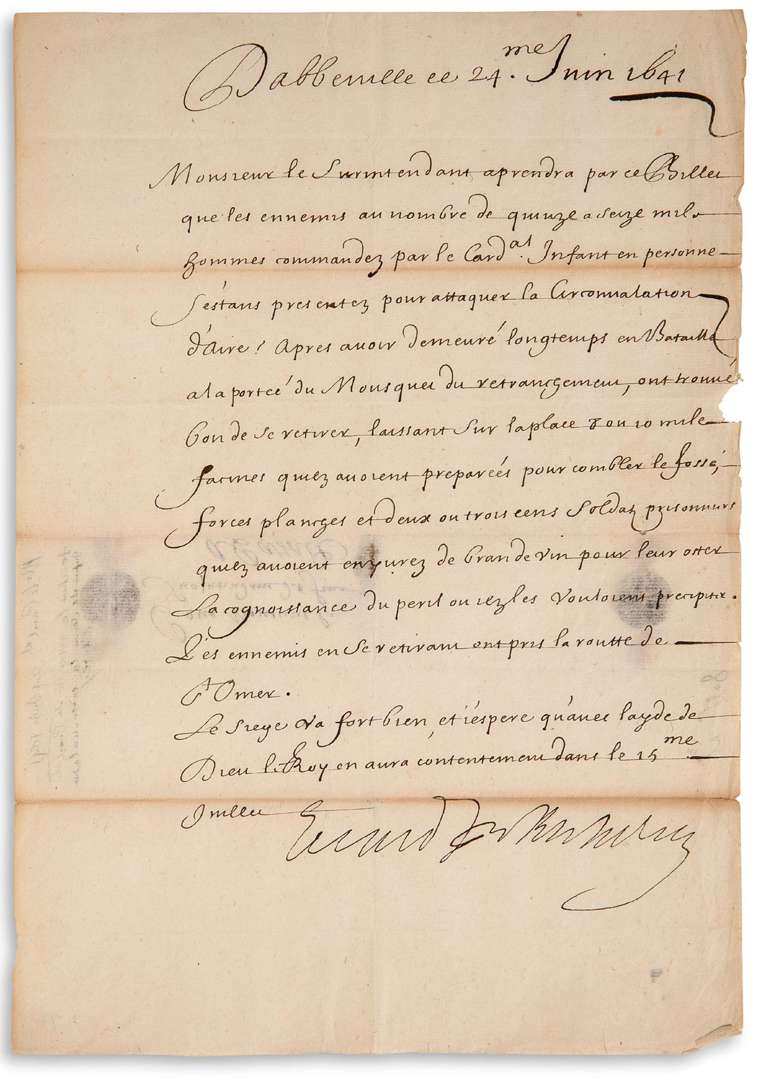 Dabbeville ce 24.me Juin 1641
Monsieur le Surintendant aprendra par ce Billet
que les ennemis au nombre de quinze a seize mil
hommes commandez par le Card.al Infant en personne
s'estans presentez pour attaquer la Circonvalation
d'Aire! Apres avoir demeuré longtemps en Bataille
a la porteé du Mousquet du retranchement, ont trouvé
bon de se retirer, laissant sur la place 8 ou 10 mile
facines qu'iez avoient preparées pour combler le fossé,
forces planches et deux ou trois cens Soldatz prisonniers
qu'iez avoient enyurez de brande vin pour leur oster
La cognoissance du peril ou iez les vouloient precipiter.
Les ennemis en se retirant ont pris la routte de
St Omer.
Le siege va fort bien, et i'espere qu'avec layde de
Dieu le Roy en aura contentement dans le 15me
Juillet